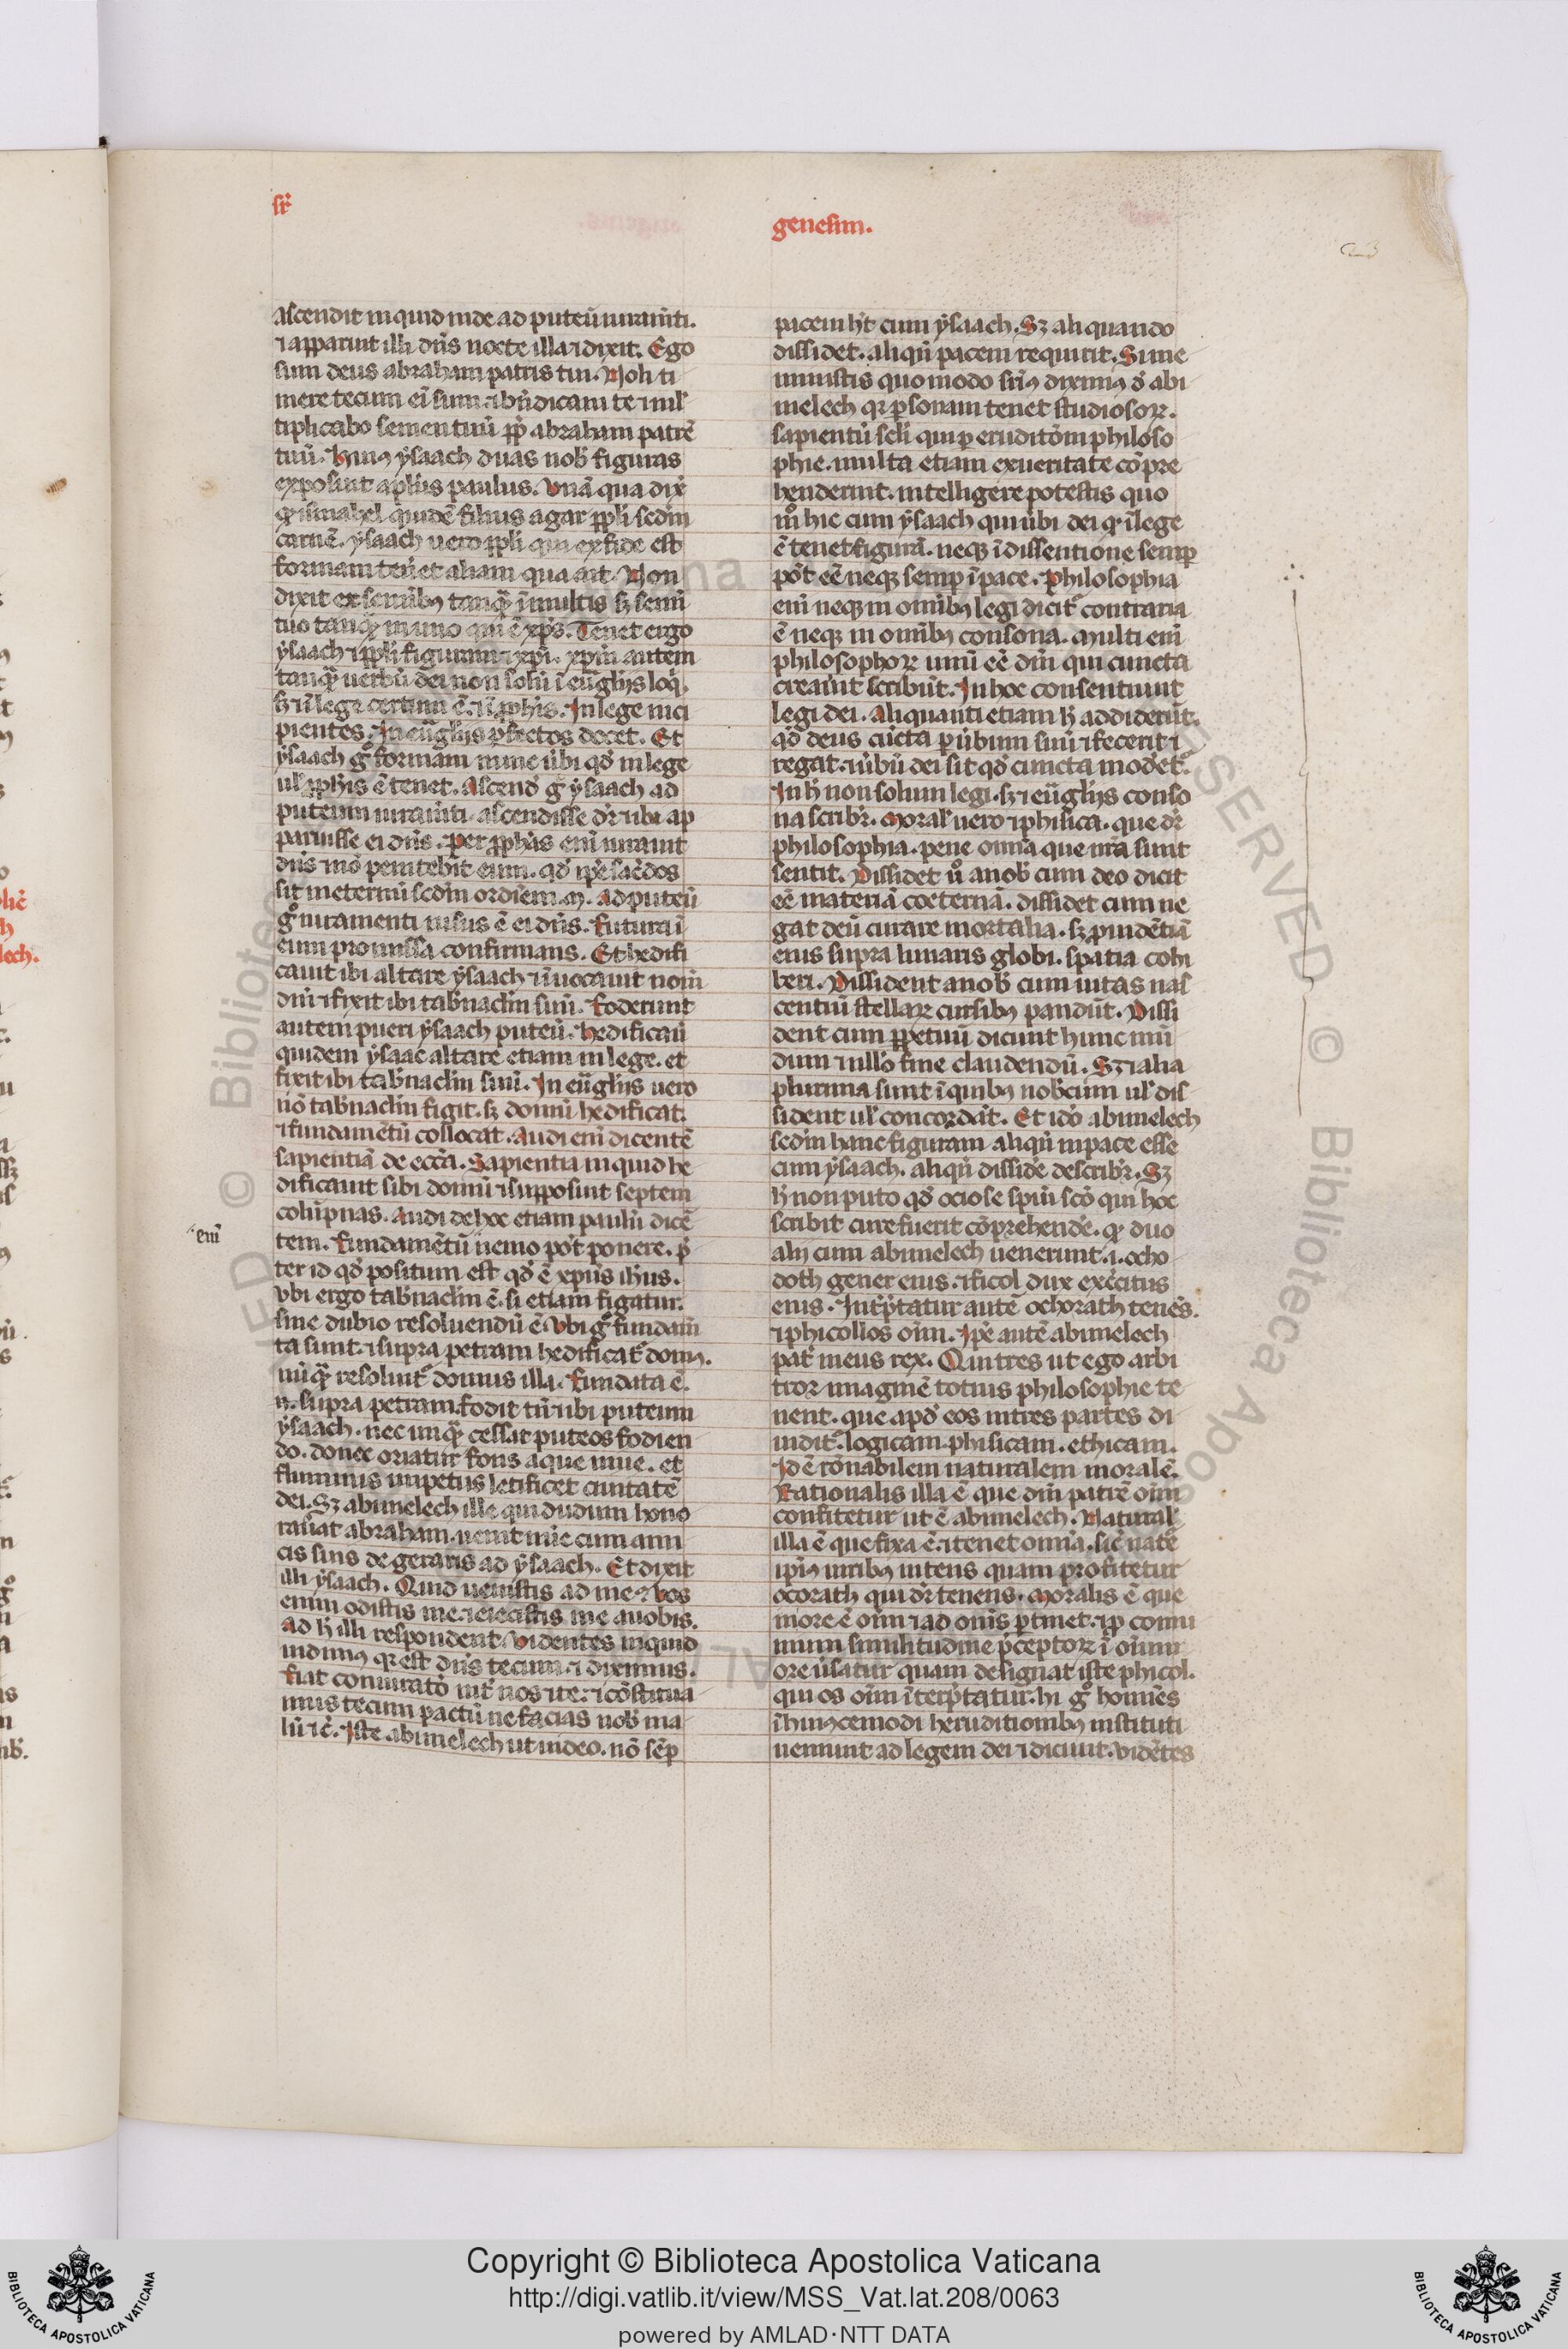 sr̄
genesim.
ascendit inquid inde ad puteū iuram̄ti.
⁊ apparuit illi dn̄s nocte illa ⁊ dixit. Ego
sum deus abraham patris tui. Noli ti
mere tecum eī sum ⁊ bn̄dicam te ⁊ mul
tiplicabo semen tuū ꝓp̄ abraham patrē
tuū. Huius ẏsaach duas nob̄ figuras
exposuit apl̄us paulus. Vnā qua dix̄
ꝙ ismahel quidē filius agar ppl̄i scdm̄
carnē. ẏsaach uero ppl̄i qui ex fide est
formam ten̄et aliam qua ait. Non
dixit ex seminibꝰ tanqȝ ī multis sȝ semī
tuo tanqȝ in uno qui ē xp̄s. Tenet ergo
ẏsaach ⁊ ppl̄i figuram ⁊ xp̄i. xp̄m autem
tanqȝ uerbū dei non solū ī euḡlijs loq̄.
sȝ ⁊ ī lege certum ē. ⁊ ī ꝓphis. In lege inci
pientes. In euḡlijs ꝑfectos docet. Et
ẏsaach gͦ formam nunc ūbi qd̄ in lege
ul̓ ꝓphis ē tenet. Ascend̓ gͦ ẏsaach ad
puteum iuram̄ti. ascendisse dr̄ ⁊ ibi ap
paruisse ei dn̄s. Per ꝓphas enī iurauit
dn̄s ⁊ nō penitebit eum. qd̄ ip̄e sac̄dos
sit in eternū scdm̄ ordiem .m. Ad puteū
gͦ iuramenti uisus ē ei dn̄s. Futura ī
eum promissa confirmans. Et hedifi
cauit ibi altare ẏsaach ⁊ īuocauit nom̄
dn̄i ⁊ fixit ibi tab̄nacl̄m suū. Foderunt
autem pueri ẏsaach puteū. Hedificau̅
quidem ẏsaac altare etiam in lege. et
fixit ibi tab̄nacl̄m suū. In euḡlijs uero
nō tab̄nacl̄m figit. sȝ domū hedificat.
⁊ fundamētū collocat. Audi enī dicentē
sapientiā de ecc̄a. Sapientia inquid he
dificauit sibi domū ⁊ supposuit septem
colūpnas. Audi de hoc etiam paulū dicē
·enī
tem. Fundamētū nemo pōt ponere. p̄
ter id qd̄ positum est qd̄ ē xp̄us ih̄us.
Vbi ergo tab̄nacl̄m ē. si etiam figatur.
sine dubio resoluendū ē. Vbi gͦ fundam̄
ta sunt. ⁊ supra petram hedificat̓ domꝰ.
nūqȝ resoluit̓ domus illa. Fundata ē.
n̄. supra petram. Fodit tn̄ ⁊ ibi puteum
ẏsaach. nec unqȝ cessat puteos fodien
do. donec oriatur fons aque uiue. et
fluminis impetus letificet ciuitatē
dei. Sȝ abimelech ille qui dudum hono
rau̅at abraham. uenit nūc cum ami
cis suis de geraris ad ẏsaach. Et dixit
illi ẏsaach. Quid uenistis ad me? Vos
enim odistis me. ⁊ eiecistis me a uobis.
Ad h̄ illi respondent. Videntes inquid
uidimꝰ qr̄ est dn̄s tecum. ⁊ diximus.
Fiat coniuratō int̓ nos ⁊ te. ⁊ cōstitua
mus tecum pactū ne facias nob̄ ma
lū ⁊c̄. Iste abimelech ut uideo. nō sēꝑ
pacem h̄t cum ẏsaach. Sȝ aliquando
dissidet. aliqn̄ pacem requirit. Si me
ministis quomodo sr̄iꝰ diximꝰ d̓ abi
melech qr̄ ꝑsonam tenet studiosoꝝ.
sapientū scl̄i qui ꝑ eruditōm philoso
phie. multa etiam ex ueritate cōpre
henderunt. intelligere potestis quo
mͦ hic cum ẏsaach qui ūbi dei ꝙ ī lege
ē tenet figurā. neqȝ ī dissentione semꝑ
pōt eē neqȝ semꝑ ī pace. Philosophia
enī neqȝ in omībꝰ legi dicit̓ contraria
ē neqȝ in omībꝰ consona. Multi enī
philosophoꝝ unū eē dm̄ qui cuncta
creauit scribūt. In hoc consentiunt
legi dei. Aliquanti etiam h̄ addiderūt.
qd̄ deus cūcta ꝑ ūbum suū ⁊ fecerit ⁊
regat. ⁊ ūbū dei sit qd̄ cuncta modet̓.
In h̄ non solum legi. sȝ ⁊ euḡlijs conso
na scribr̄. Moral̓ uero ⁊ phisica. que dr̄
philosophia. pene omīa que nr̄a sunt
sentit. Dissidet uͦ a nob̄ cum deo dicit
eē materiā coeternā. dissidet cum ne
gat deū curare mortalia. sȝ ꝓuidētiā
eius supra lunaris globi. spatia cohi
beri. Dissident a nob̄ cum uitas nas
centiū stellaꝝ cursibꝰ pandūt. Dissi
dent cum ꝑpetuū dicunt hunc mū
dum ⁊ nullo fine claudendū. Sȝ ⁊ alia
plurima sunt ī quibꝰ nobcum ul̓ dis
sident ul̓ concordāt. Et idō abimelech
scdm̄ hanc figuram aliqn̄ in pace esse
cum ẏsaach. aliqn̄ dissidē describr̄. Sȝ
h̄ non puto qd̄ ociose spūi scō qui hoc
scribit cure fuerit cōprehendē. ꝙ duo
alij cum abimelech uenerunt. i. ocho
doth gener eius. ⁊ ficol dux exc̄citus
eius. Int̓p̄tatur autē ochorath tenēs.
⁊ phicol los om̄. Ip̄e autē abimelech
pat̓ meus rex. Qui tres ut ego arbi
tror imaginē totius philosophie te
nent. que apd̓ eos in tres partes di
uidit̓. logicam. phisicam. ethicam.
Id ē rōnabilem naturalem moralē.
Rationalis illa ē que dm̄ patrē om̄
confitetur ut ē abimelech. Natural̓
illa ē que fixa ē. ⁊ tenet omīa. sic̄ natē
ip̄iꝰ uiribꝰ nitens quam profitetur
ocorath qui dr̄ tenens. Moralis ē que
more ē om̄ ⁊ ad om̄s ꝑtinet. ⁊ ꝑ comu
nium similitudine p̄ceptoꝝ ī om̄iu
ore ūsatur quam designat iste phicol.
qui os om̄ īterp̄tatur. hi gͦ hom̄es
ī huiꝰcemodi heruditionibꝰ instituti
ueniunt ad legem dei ⁊ dicunt. Vidētes
Copyright © Biblioteca Apostolica Vaticana
http://digi.vatlib.it/view/MSS_Vat.lat.208/0063
powered by AMLAD·NTT DATA
BIBLIOTECA APOSTOLICA VATICANA
BIBLIOTECA APOSTOLICA VATICANA